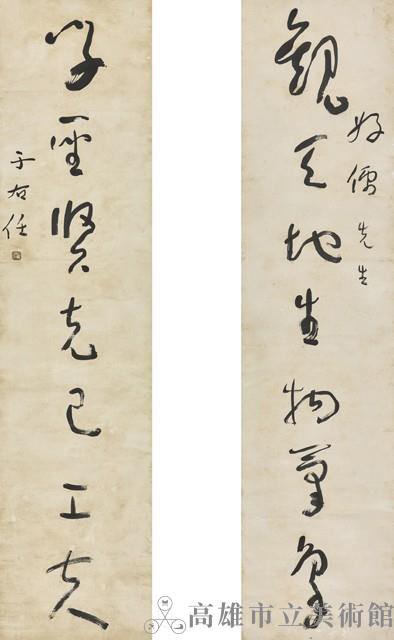 觀天地生物氣象
好儒先生
學聖賢克己工夫
于右任
高雄市立美術館